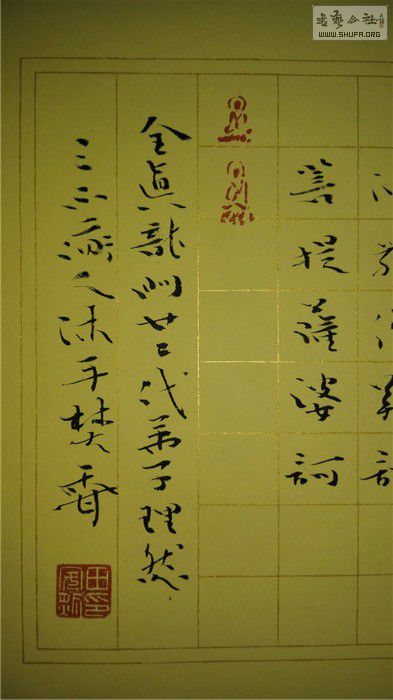 書藝公社
WWW.SHUFA.ORG
菩提薩婆訶
全眞龍門廿二代弟子理然
三不齋人沐手焚香